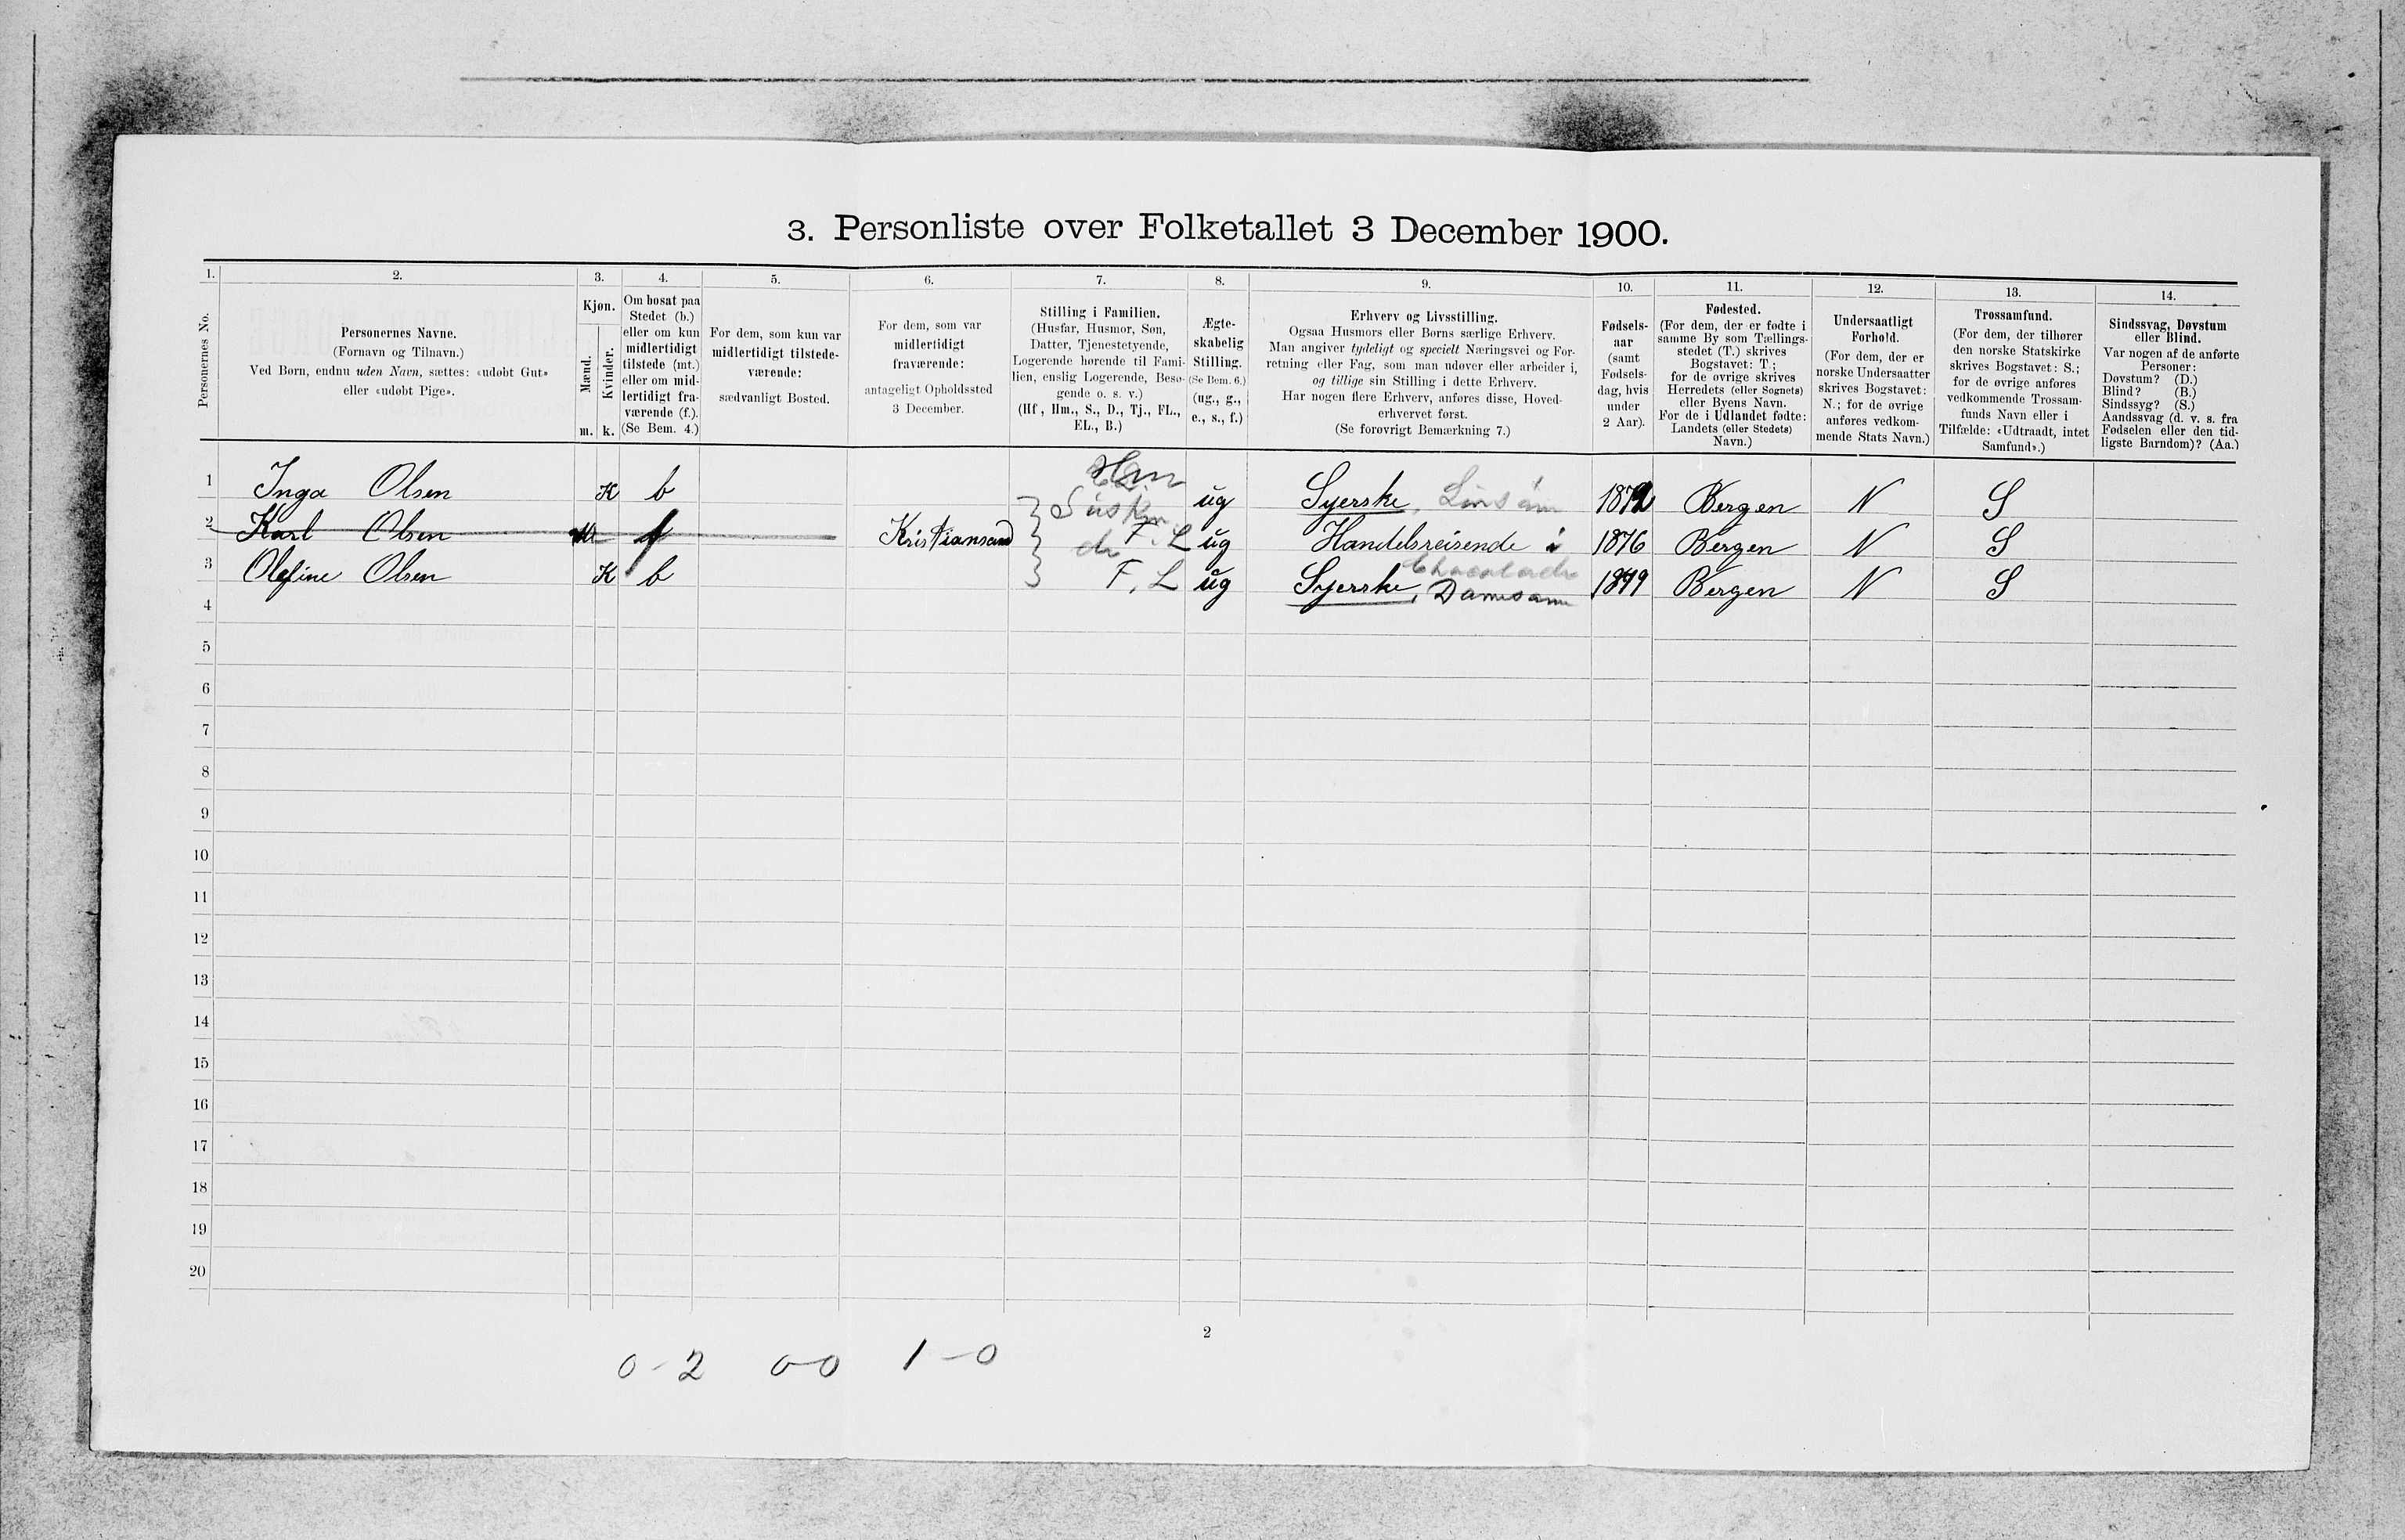 3. Personliste over Folketallet 3 December 1900.
1. 2. 3. 4. 5. 6. 7. 8. 9. 10. 11. 12. 13. 14.
Personernes No.
Personernes Navne.
(Fornavn og Tilnavn.)
Ved Børn, endnu uden Navn, sættes: «udøbt Gut»
eller «udøbt Pige».
Kjøn.
Mænd.
Kvinder.
m. k.
Om bosat paa
Stedet (b.)
eller om kun
midlertidigt
tilstede (mt.)
eller om mid-
lertidigt fra-
værende (f.).
(Se Bem. 4.)
For dem, som kun var
midlertidigt tilstede-
værende:
sædvanligt Bosted.
For dem, som var
midlertidigt
fraværende:
antageligt Opholdssted
3 December.
Stilling i Familien.
(Husfar, Husmor, Søn,
Datter, Tjenestetyende,
Logerende hørende til Fami-
lien, enslig Logerende, Besø-
gende o. s. v.)
(Hf, Hm., S., D., Tj., FL.,
EL., B.)
Ægte-
skabelig
Stilling.
(Se Bem. 6.)
(ug., g.,
e., s., f.)
Erhverv og Livsstilling.
Ogsaa Husmors eller Børns særlige Erhverv.
Man angiver tydeligt og specielt Næringsvei og For-
retning eller Fag, som man udøver eller arbeider i,
og tillige sin Stilling i dette Erhverv.
Har nogen flere Erhverv, anføres disse, Hoved-
erhvervet først.
(Se forøvrigt Bemærkning 7.)
Fødsels-
aar
(samt
Fødsels-
dag, hvis
under
2 Aar).
Fødested.
(For dem, der er fødte i
samme By som Tællings-
stedet (T.) skrives
Bogstavet: T.;
for de øvrige skrives
Herredets (eller Sognets)
eller Byens Navn.
For de i Udlandet fødte:
Landets (eller Stedets)
Navn.)
Undersaatligt
Forhold.
(For dem, der er
norske Undersaatter
skrives Bogstavet:
N.; for de øvrige
anføres vedkom-
mende Stats Navn.)
Trossamfund.
(For dem, der tilhører
den norske Statskirke
skrives Bogstavet: S.;
for de øvrige anføres
vedkommende Trossam-
funds Navn eller i
Tilfælde: «Udtraadt, intet
Samfund».)
Sindssvag, Døvstum
eller Blind.
Var nogen af de anførte
Personer:
Døvstum? (D.)
Blind? (B.)
Sindssyg? (S.)
Aandssvag (d. v. s. fra
Fødselen eller den tid-
ligste Barndom)? (Aa.)
1 Inga Olsen K b Hm ug Syerske, 1872 Bergen N S
2 Karl Olsen f Kristiansand F. L ug Handelsreisende i 1876 Bergen N S
3 Olefine Olsen K b F. L ug Syerske, Damesøm 1879 Bergen N S
4
5
6
7
8
9
10
11
12
13
14
15
16
17
18
19
20
2
0-2 0-0 1-0